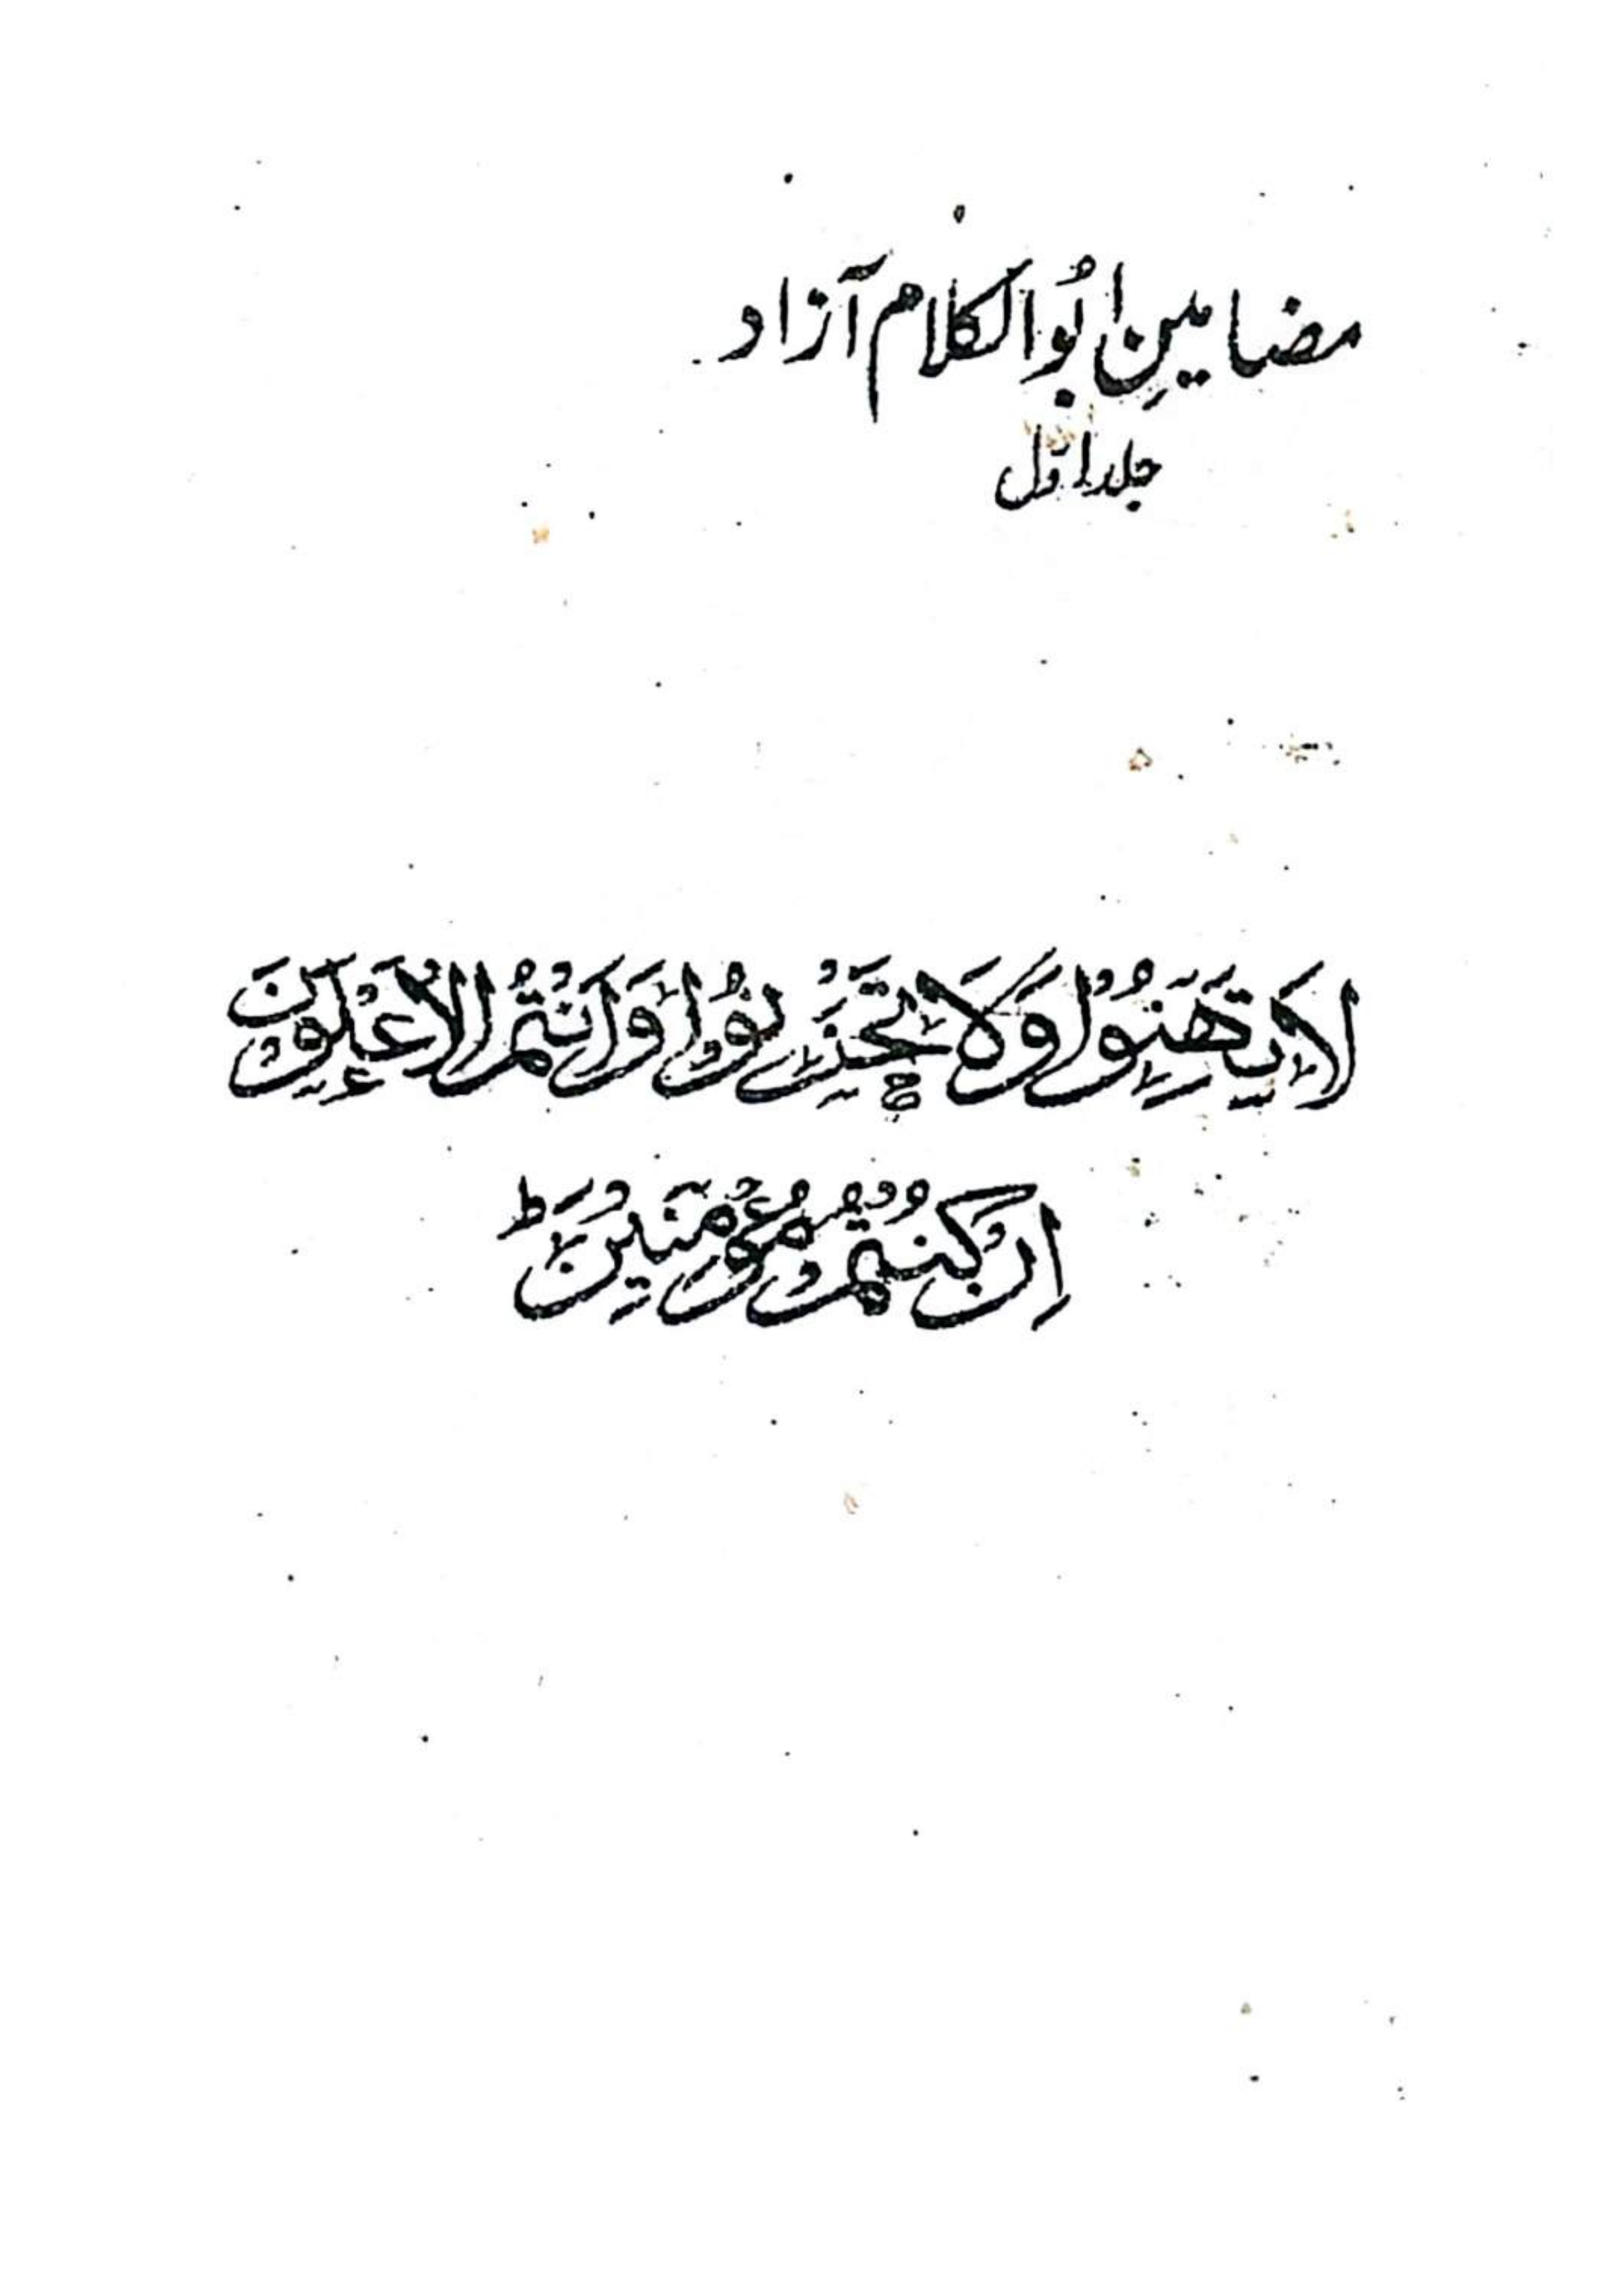 مضامینِ ابُوالکلام آزاد
جلد اوّل
لَا تَهِنُوْا وَلَا تَحْزَنُوْا وَاَنْتُمُ الْاَعْلَوْنَ
اِنْ كُنْتُمْ مُّؤْمِنِيْنَ ط